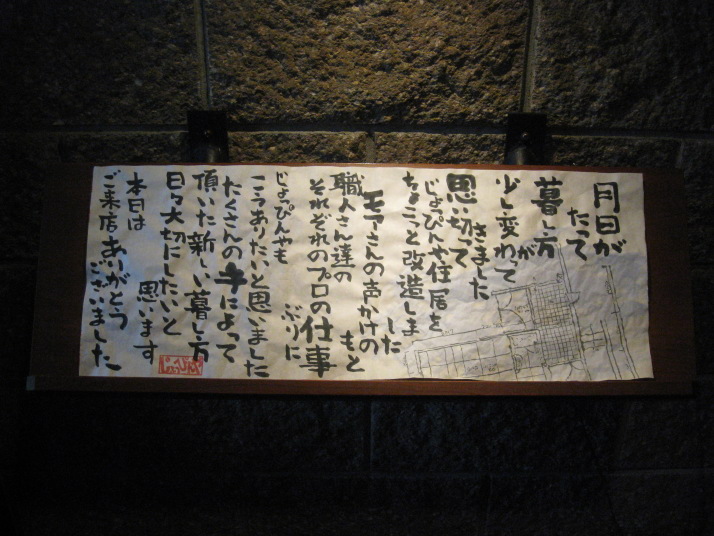 月日が
たって
暮し方
が
少し変わって
きました
思い切って
じょっぴんや住居を
ちょこっと改造しま
した
モアーさんの声かけの
もと
職人さん達の
それぞれのプロの仕事
ぶりに
じょっぴんやも
こうありたいと思いました
たくさんの手によって
頂いた新しい暮し方
日々大切にしたいと
思います
本日は
ご来店ありがとう
ございました
じょっぴんや